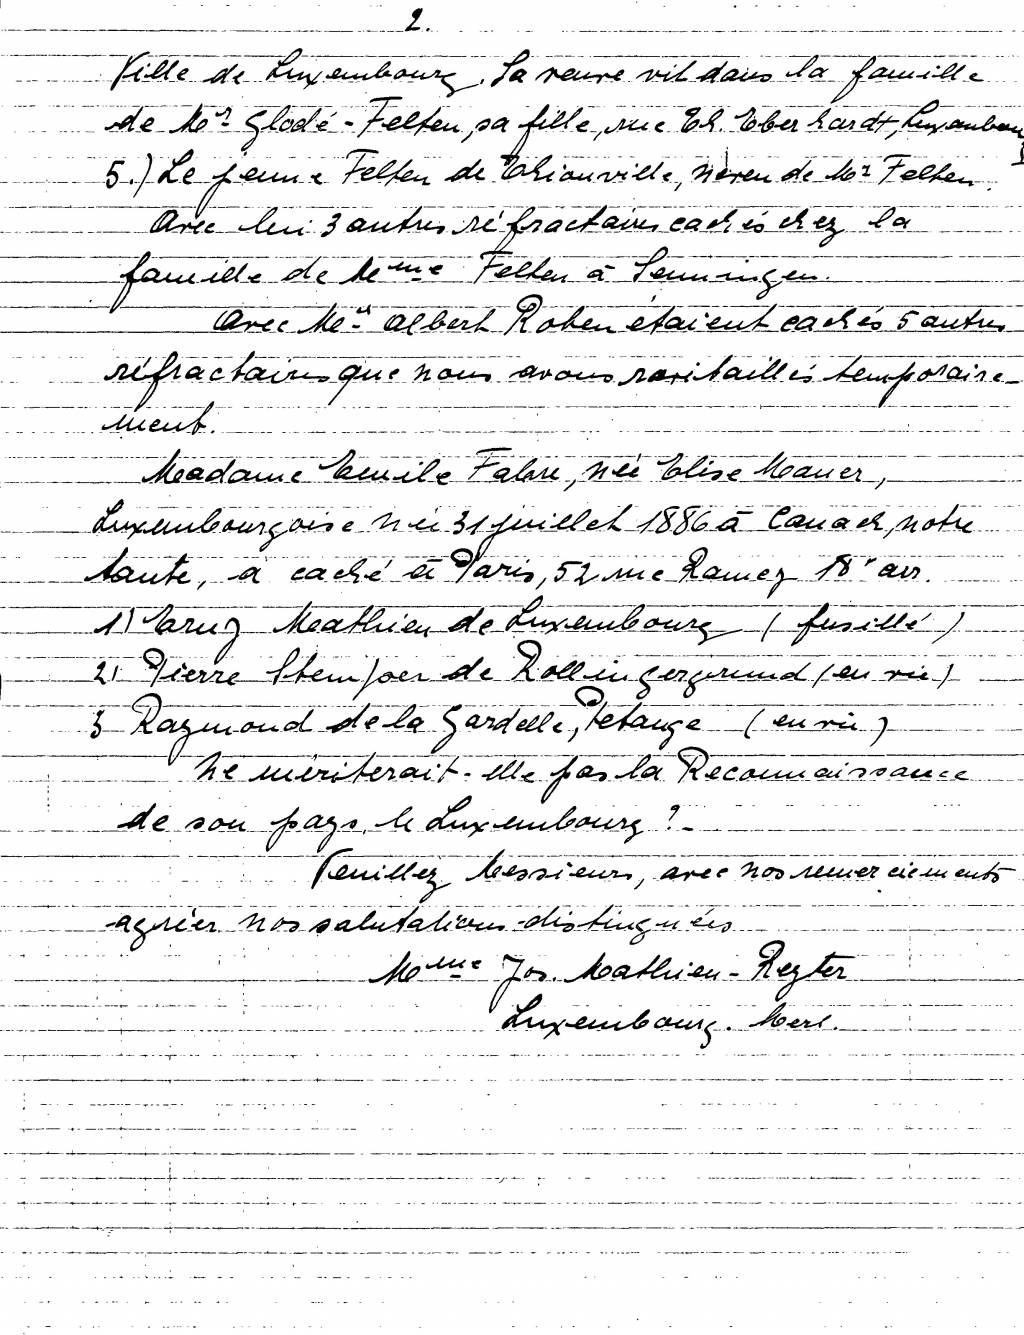 2.
Ville de Luxembourg. Sa veuve vit dans la famille
de Mr Glodé-Felten, sa fille, rue Th. Eberhardt, Luxembourg
5.) Le jeune Felten de Thionville, neveu de Mr Felten.
Avec lui 3 autres réfractaires cachés chez la
famille de Mme Felten à Senningen.
Avec Mr Albert Roben étaient cachés 5 autres
réfractaires que nous avons ravitaillés temporaire-
ment.
Madame Emile Fabre, née Elise Maner,
Luxembourgoise née 31 juillet 1886 à Canach, notre
tante, a caché à Paris, 52 rue Ramey 18e arr.
1) Mathieu de Luxembourg (fusillé)
2) Pierre Stemper de Rollingergrund (en vie)
3 Raymond de la Gardelle, Petange (en vie)
Ne mériterait-elle pas la Reconnaissance
de son pays, le Luxembourg ?-
Veuillez Messieurs, avec nos remerciements
agréer nos salutations distinguées
Mme Jos. Mathieu-Reyter
Luxembourg. Merl.